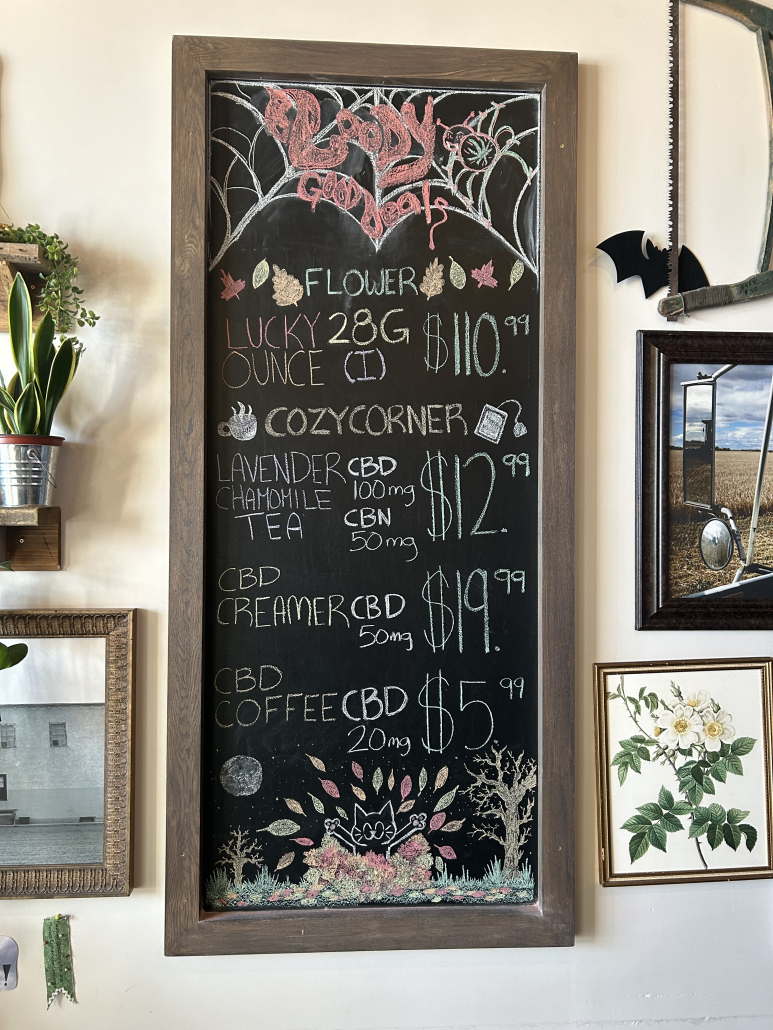 BLOODY
GOOD deals
FLOWER
LUCKY OUNCE 28G (I) $110.99
COZY CORNER
LAVENDER CHAMOMILE TEA CBD 100mg CBN 50mg $12.99
CBD CREAMER CBD 50mg $19.99
CBD COFFEE CBD 20mg $5.99
!